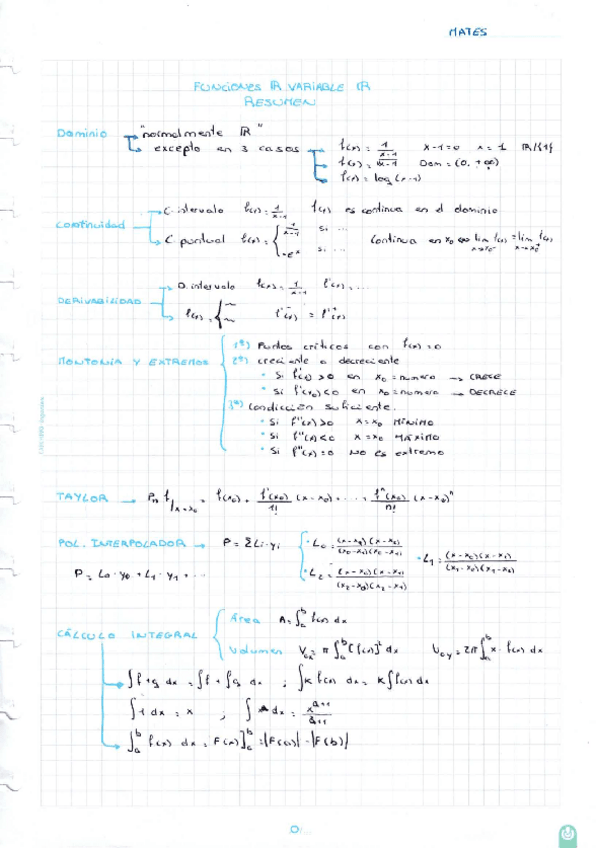 MATES
FUNCIONES IR VARIABLE IR
RESUMEN
Dominio → "normalmente IR"
→ excepto en 3 casos → f(x) = 1/(x-1) x-1=0 x=1 IR/{1}
Dom = (0, +∞)
f(x) = log(x-1)
Continuidad → C. intervalo f(x) = 1/(x-1) f(x) es continua en el dominio
→ C. puntual f(x) = { 1/(x-1) si ...
si ...
Continua en x0 ⇔ lim f(x) = lim f(x)
x→x0⁻ x→x0⁺
DERIVABILIDAD → D. intervalo f(x) = 1/(x-1) f'(x) ...
→ f(x) = { f'⁻(x) = f'⁺(x)
MONTONIA Y EXTREMOS
1º) Puntos críticos con f(x)=0
2º) creciente o decreciente
• Si f'(x)>0 en x0=numero → CRECE
• Si f'(x0)<0 en x0=numero → DECRECE
3º) condicción suficiente.
• Si f''(x)>0 x=x0 MÍNIMO
• Si f''(x)<0 x=x0 MÁXIMO
• Si f''(x)=0 NO es extremo
TAYLOR → Pn f|x=x0 = f(x0) + f'(x0)/1! (x-x0) + ... + fⁿ(x0)/n! (x-x0)ⁿ
POL. INTERPOLADOR → P = ΣLi·yi
• L0 = (x-x1)(x-x2)/(x0-x1)(x0-x2)
• L1 = (x-x0)(x-x2)/(x1-x0)(x1-x2)
P = L0·y0 + L1·y1 + ...
• L2 = (x-x0)(x-x1)/(x2-x0)(x2-x1)
CÁLCULO INTEGRAL
Área A = ∫ₐᵇ f(x) dx
Volumen Vox = π∫ₐᵇ [f(x)]² dx Voy = 2π∫ₐᵇ x·f(x) dx
→ ∫f+g dx = ∫f + ∫g dx ; ∫K f(x) dx = K∫f(x) dx
∫1 dx = x ; ∫ dx = xᵃ⁺¹/(a+1)
→ ∫ₐᵇ f(x) dx = F(x)]ₐᵇ = |F(a)| - |F(b)|